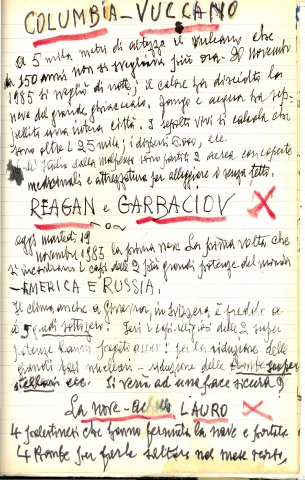 COLUMBIA - VULCANO
A 5 mila metri di altezza il vulcano che
a 150 anni non si svegliava più ora 20 novembre
1985 si svegliò di notte; il calore ha disciolto la
neve del grande ghiacciaio, fango e acqua ha sep-
pellito una intera città. I sepolti vivi si calcola che
sono oltre i 25 mila; i dispersi 6.000, ecc.
Italia dalla malpensa sono partiti 2 aerei con coperte
medicinali e attrezzatura per alleggiare i senza tetto.
REAGAN e GARBACIOV X
oggi martedì 19
novembre 1985 la prima neve La prima volta che
si incontrano i capi delle 2 più grandi potenze del mondo
- AMERICA E RUSSIA.
Il clima anche a Ginevra, in Svizzera è freddo
a 5 gradi sottozero. Ieri i capi religiosi delle 2 super
potenze hanno pregato assai! per la riduzione delle
grandi basi nucleari - riduzione delle Bombe
stellari ecc. Si verrà ad una pace sicura?
La nave - LAURO X
4 palestinesi che hanno fermata la nave e portate
4 Bombe per farla saltare nel mese